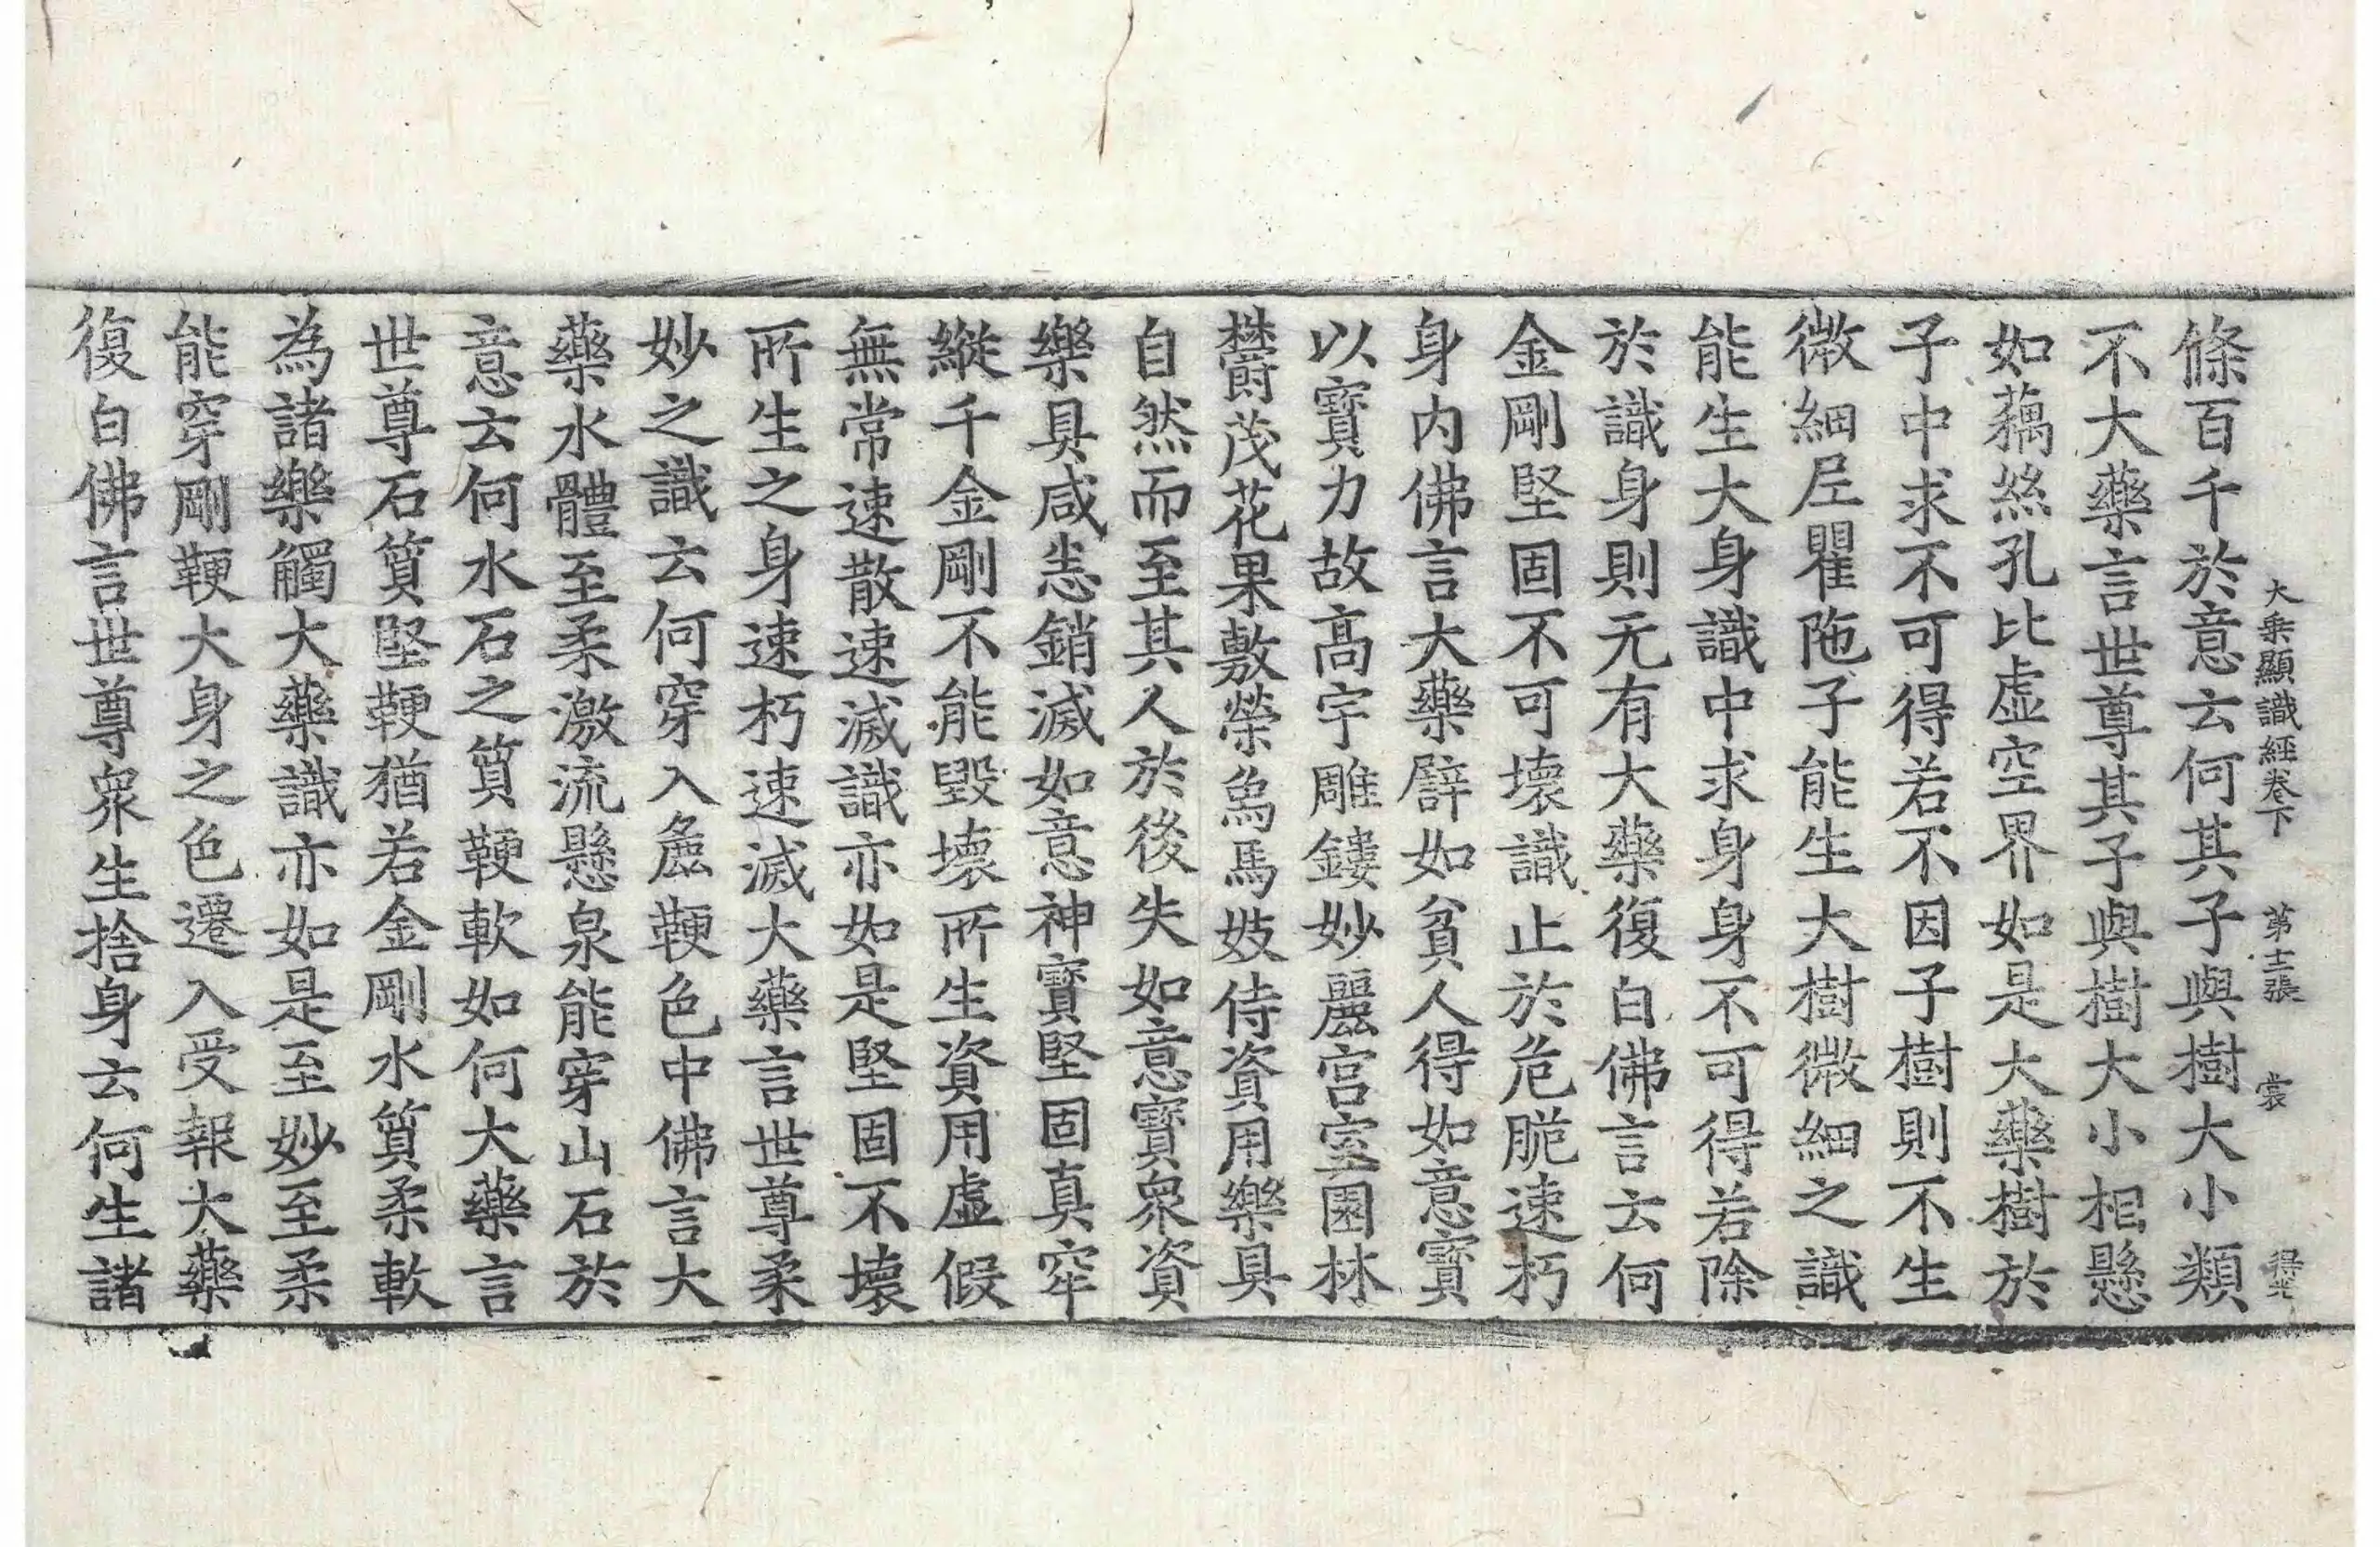 大乘顯識經卷下 第十二張 裳
條百千於意云何其子與樹大小類
不大藥言世尊其子與樹大小相懸
如藕絲孔比虛空界如是大藥樹於
子中求不可得若不因子樹則不生
微細尼瞿陁子能生大樹微細之識
能生大身識中求身身不可得若除
於識身則无有大藥復白佛言云何
金剛堅固不可壞識止於危脆速朽
身內佛言大藥譬如貧人得如意寶
以寶力故高宇雕鏤妙麗宮室園林
欝茂花果敷榮象馬妓侍資用樂具
自然而至其人於後失如意寶衆資
樂具咸恙銷滅如意神寶堅固真牢
縱千金剛不能毀壞所生資用虛假
無常速散速滅識亦如是堅固不壞
所生之身速朽速滅大藥言世尊柔
妙之識云何穿入麁鞕色中佛言大
藥水體至柔激流懸泉能穿山石於
意云何水石之質鞕軟如何大藥言
世尊石質堅鞕猶若金剛水質柔軟
為諸樂觸大藥識亦如是至妙至柔
能穿剛鞕大身之色遷入受報大藥
復白佛言世尊衆生捨身云何生諸